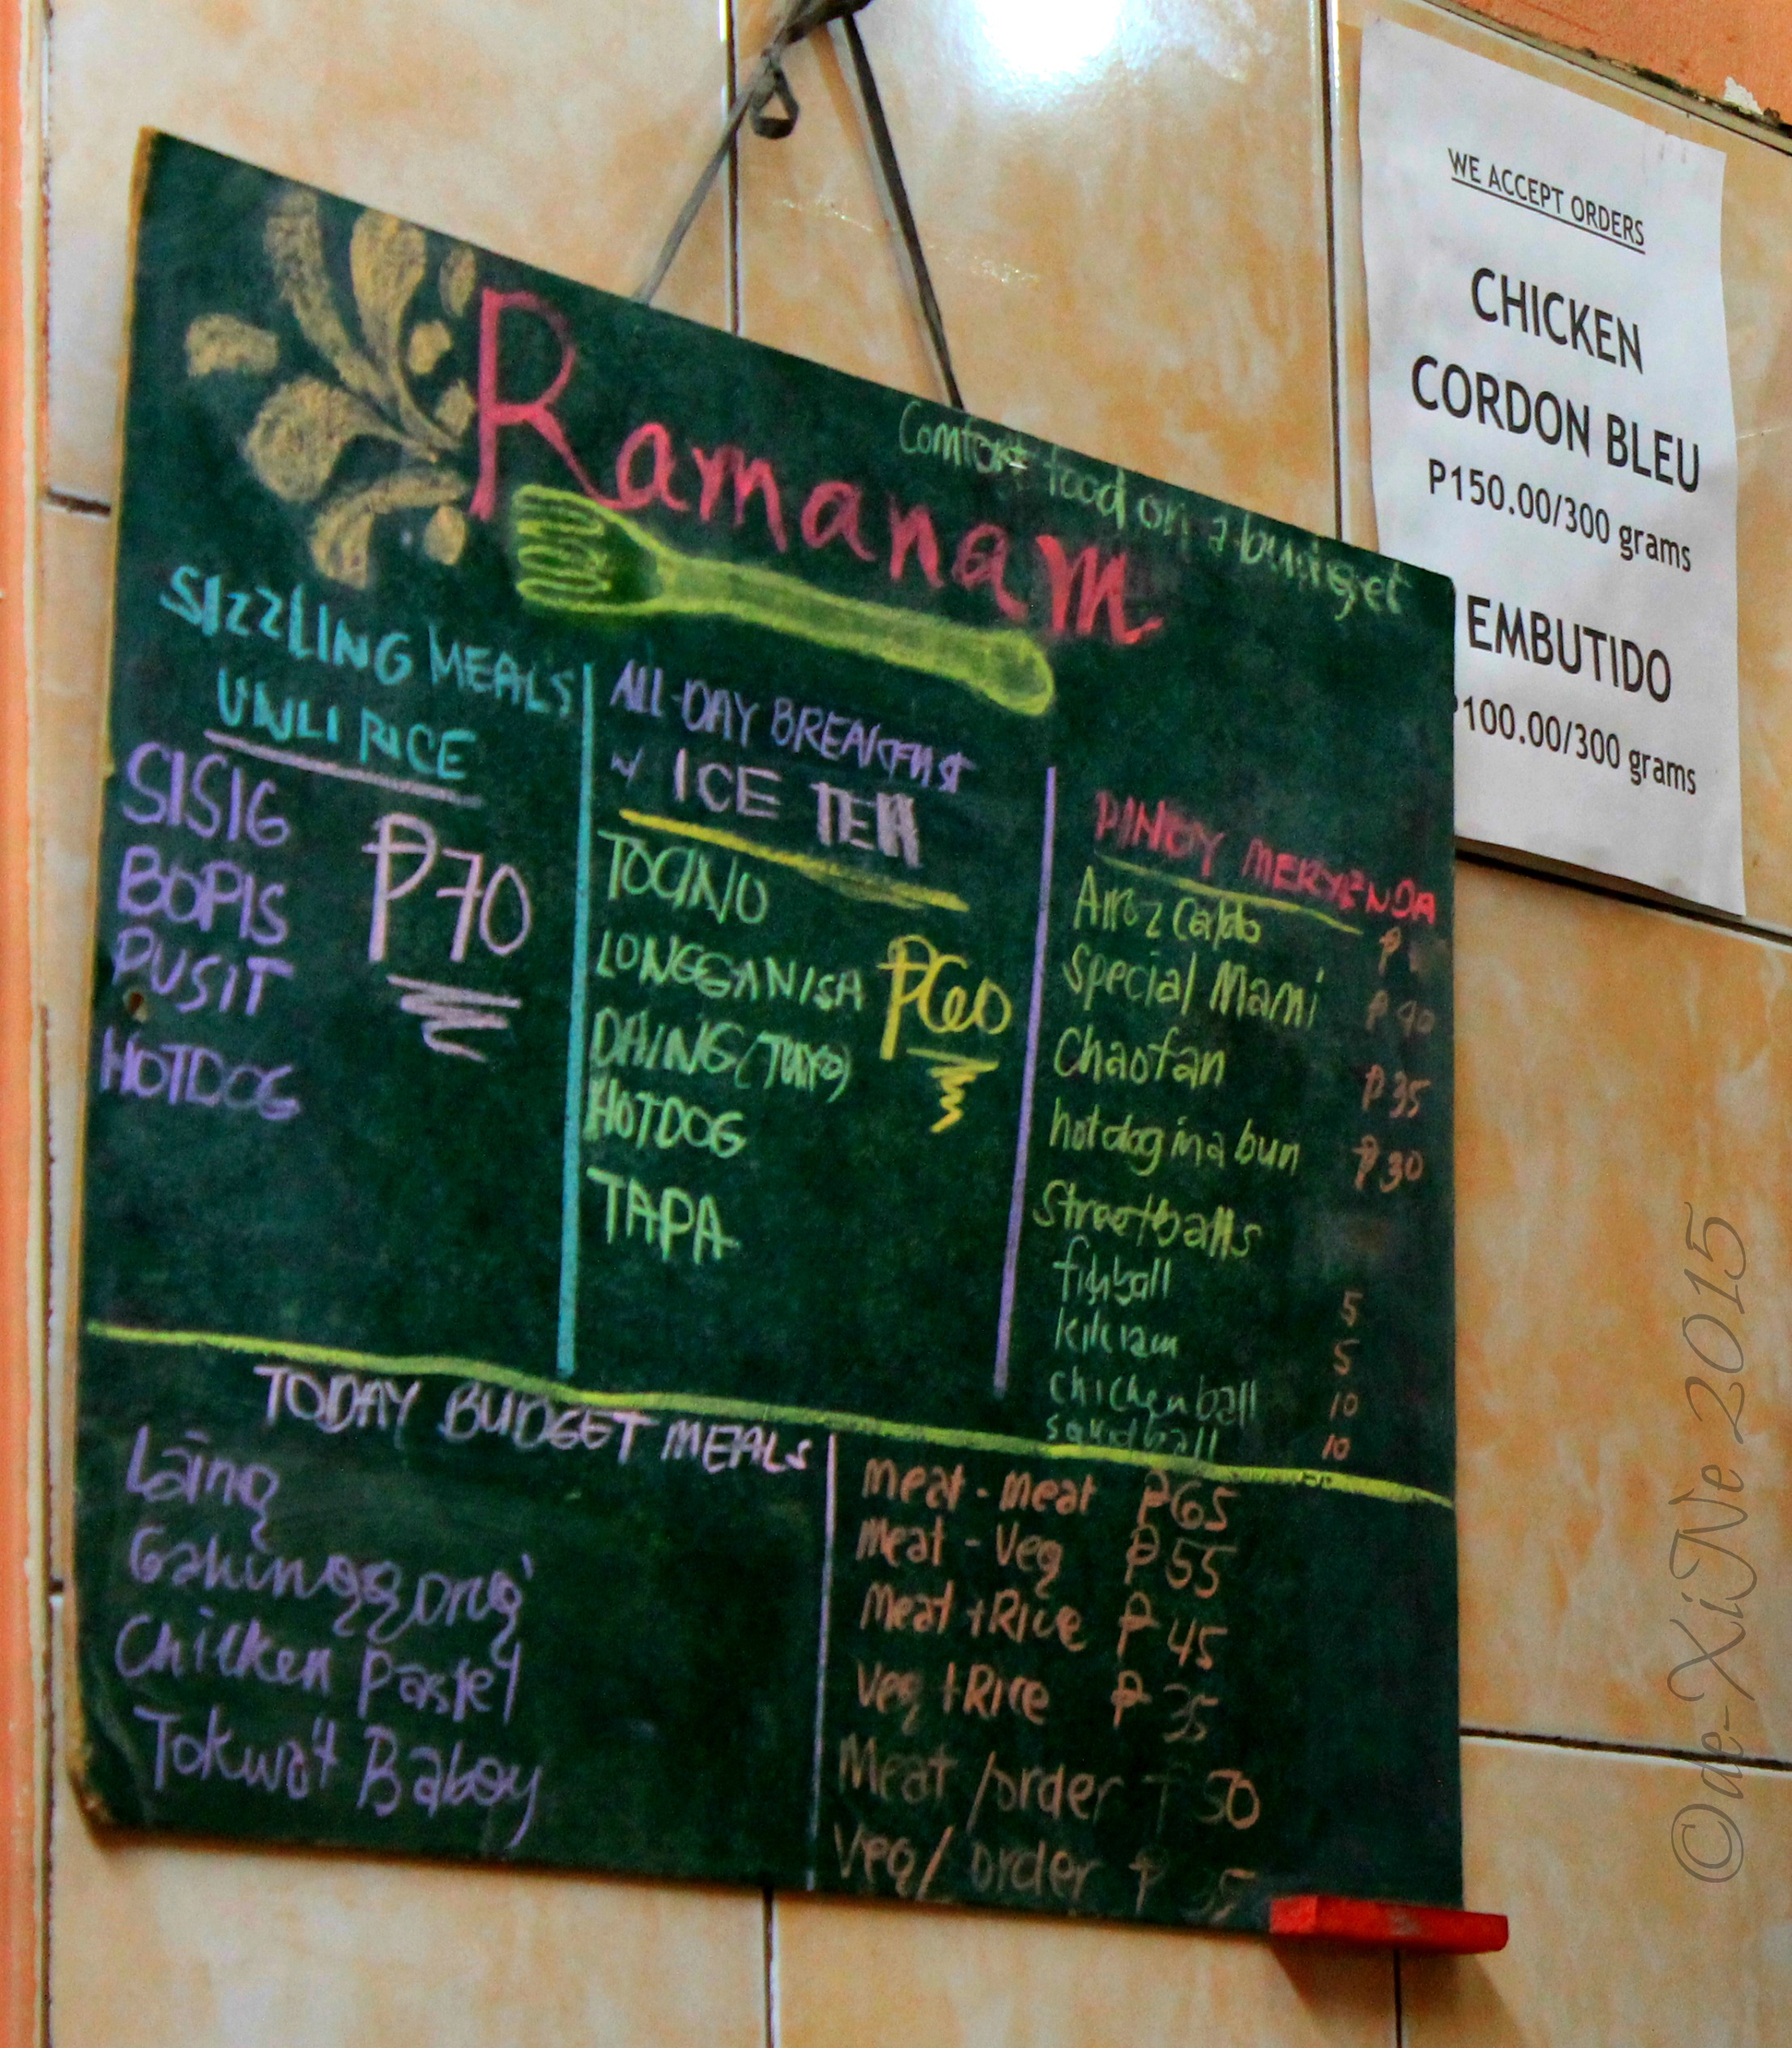 WE ACCEPT ORDERS
CHICKEN
CORDON BLEU
P150.00/300 grams
EMBUTIDO
P100.00/300 grams
Ramanam
Comfort food on a budget
SIZZLING MEALS
UNLI RICE
SISIG
BOPIS
PUSIT
HOTDOG
₱70
ALL-DAY BREAKFAST
w/ ICE TEA
TOCINO
LONGGANISA
DAING (TUYO)
HOTDOG
TAPA
₱60
PINOY MERYENDA
Arroz Caldo ₱
Special Mami ₱40
Chaofan ₱35
hotdog in a bun ₱30
Streetballs
fishball 5
kikiam 5
chicken ball 10
squidball 10
TODAY BUDGET MEALS
Laing
Chicken Pastel
Tokwa't Baboy
meat - meat ₱65
meat - Veg ₱55
Meat + Rice ₱45
Veg + Rice ₱35
Meat /order ₱50
Veg/ order ₱ 35
©de-XiNe 2015